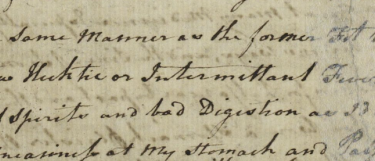 same manner as the former Fit
Hecktic or Intermittant Fever
Spirits and bad Digestion as I
uneasiness at My Stomach and